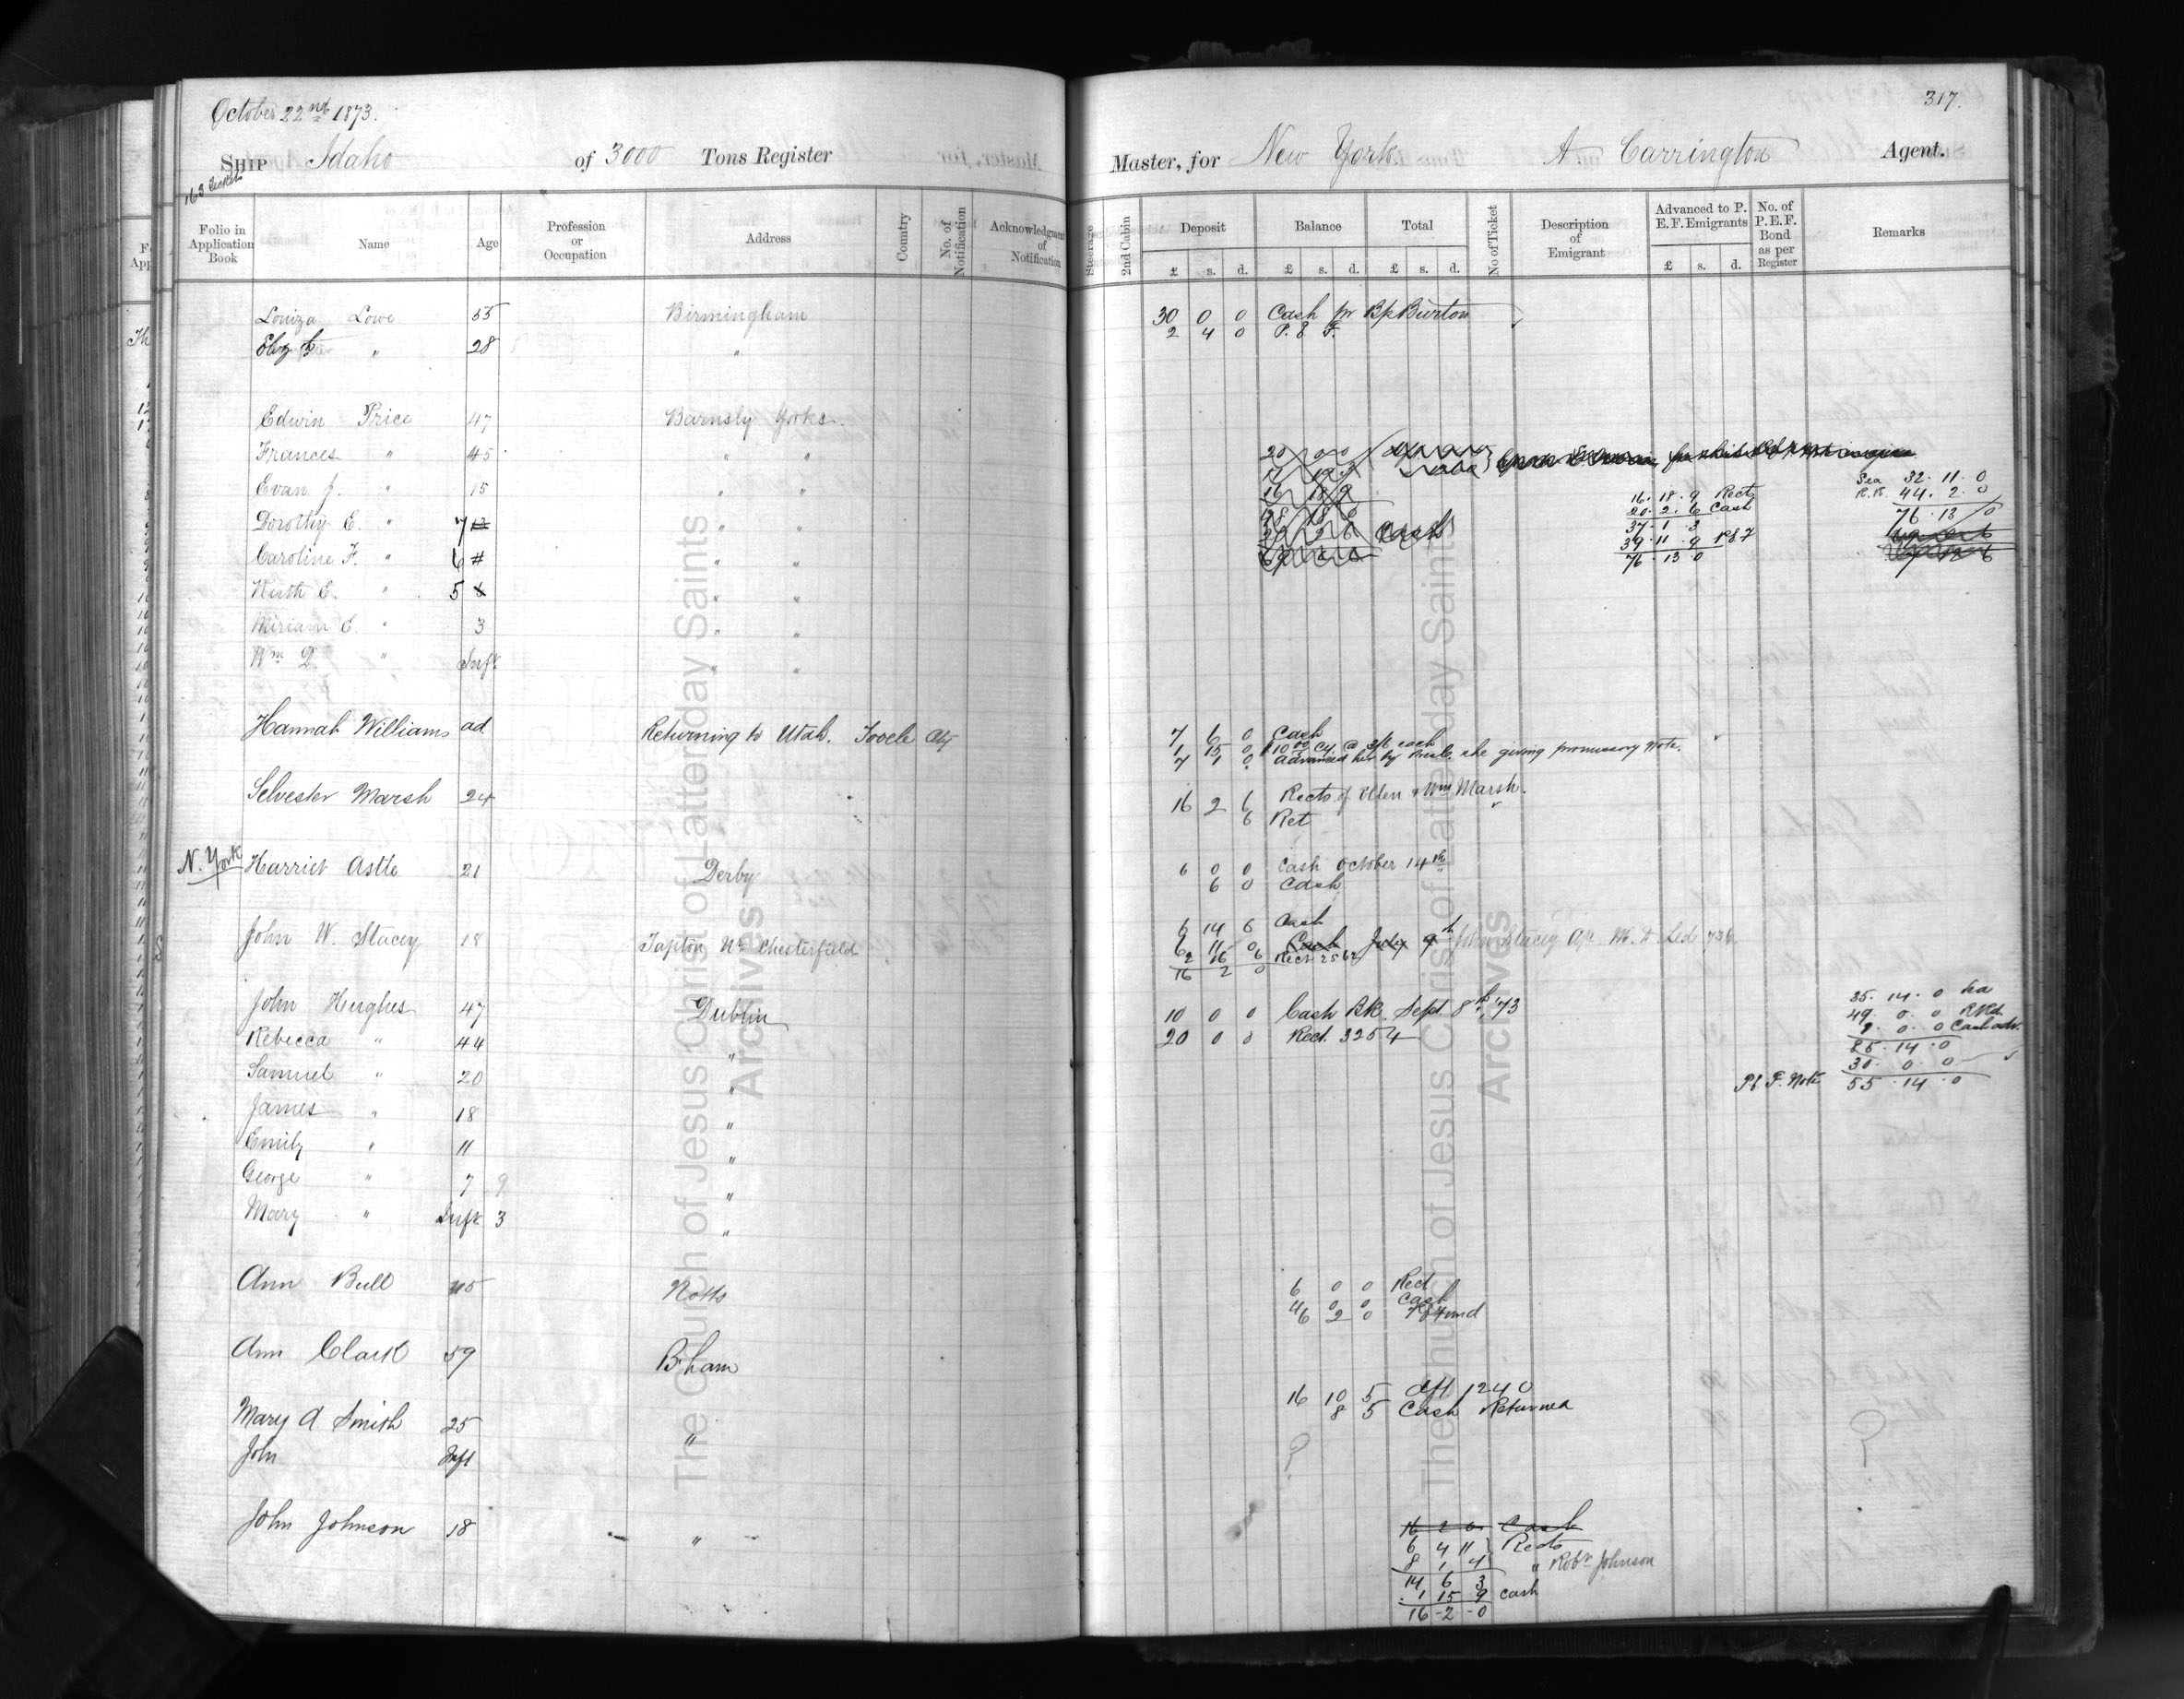 October 22nd 1873.
317.
Ship Idaho of 3000 Tons Register Master, for New York A Carrington Agent.
163 Tickets
Folio in Application Book Name Age Profession or Occupation Address Country No. of Notification Acknowledgment of Notification Steerage 2nd Cabin Deposit Balance Total No of Ticket Description of Emigrant Advanced to P. E. F. Emigrants No. of P. E. F. Bond as per Register Remarks
£ s. d. £ s. d. £ s. d. £ s. d.
Louiza Lowe 55 Birmingham 30 0 0 Cash pr Bp Burton
Eliz " 28 " 2 4 0 P. E F.
Edwin Price 47 Barnsly Yorks.
Frances " 45 " " 20 0 0
Evan J. " 15 " " 16 18 9 16. 18. 9 Rects Sea 32. 11. 0
Dorothy E. " 7 12 " " 20. 2. 6 Cash R.R. 44. 2. 0
37. 1. 3 76. 13 0
Caroline F. " 6 " " Cash 39. 11. 9 P E F
76. 13. 0
Ruth E. " 5 " "
Miriam E. " 3 " "
Wm D. " Inft " "
Hannah Williams ad Returning to Utah. Tooele City 7 6 0 Cash
1 15 0 $10.00 Cy. @ 3/6 each
7 1 0 Advanced her by she giving promissory Note.
Selvester Marsh 24 16 2 6 Rects of Ellen & Wm Marsh.
6 Ret
N. York Harriet Astle 21 Derby 6 0 0 Cash October 14th
6 0 Cash
6 14 6 Cash
John W. Stacey 18 Tapton Nr Chesterfield 6 11 0 Cash July 9th John Stacey Led 736
2 16 6 Rect 2562
16 2 0
John Hughes 47 Dublin 10 0 0 Cash BK. Sept 8th '73 35. 14. 0
49. 0. 0
Rebecca " 44 " 20 0 0 Rect. 3254 2. 0. 0 Cash adv.
85. 14. 0
Samuel " 20 " 30. 0. 0
P E F. Note 55. 14. 0
James " 18 "
Emily " 11 "
George " 7 9 "
Mary " Inft 3 "
Ann Bull 45 Notts 6 0 0 Rect
4 0 0 Cash
6 2 0
Ann Clark 59 B.ham
16 10 5 dft 1240
Mary A Smith 25 " 8 5 Cash Returned
John Inft ? ?
John Johnson 18 " 16 2 0 Cash
6 4 11 Rects
8 1 4 " Robt Johnson
14 6 3
1 15 9 cash
16-2-0
The Church of Jesus Christ of Latter-day Saints
Archives
The Church of Jesus Christ of Latter-day Saints
Archives